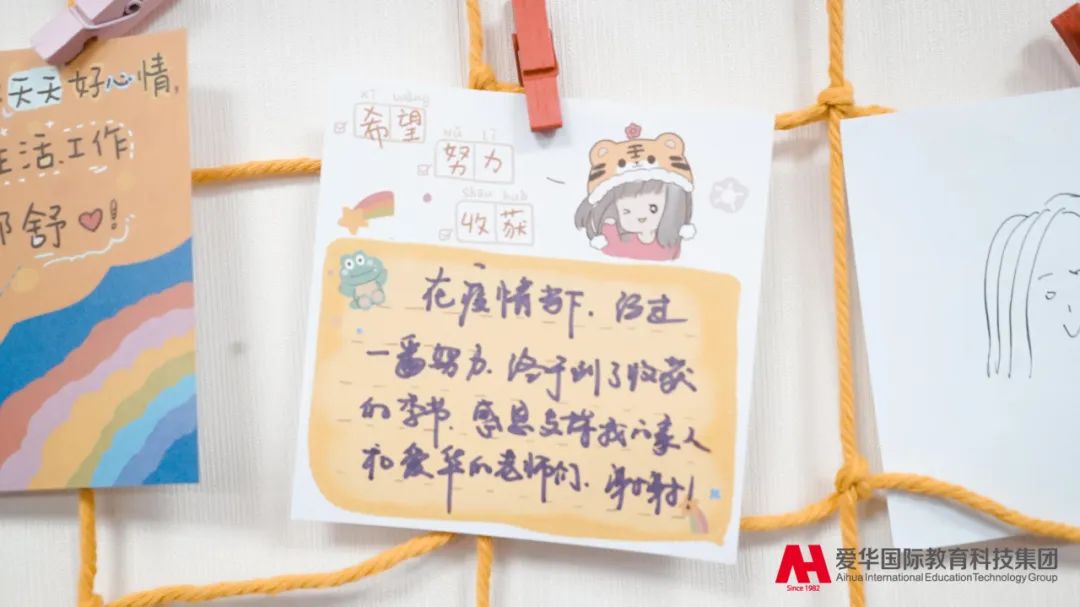 天天好心情,
生活、工作
都舒♥!
xī wàng
希望
nǔ lì
努力
shōu huò
收获
在疫情当下、经过
一番努力、终于到了收获
的季节、感恩支持我的家人
和爱华的老师们、谢谢!
爱华国际教育科技集团
Aihua International Education Technology Group
Since 1982